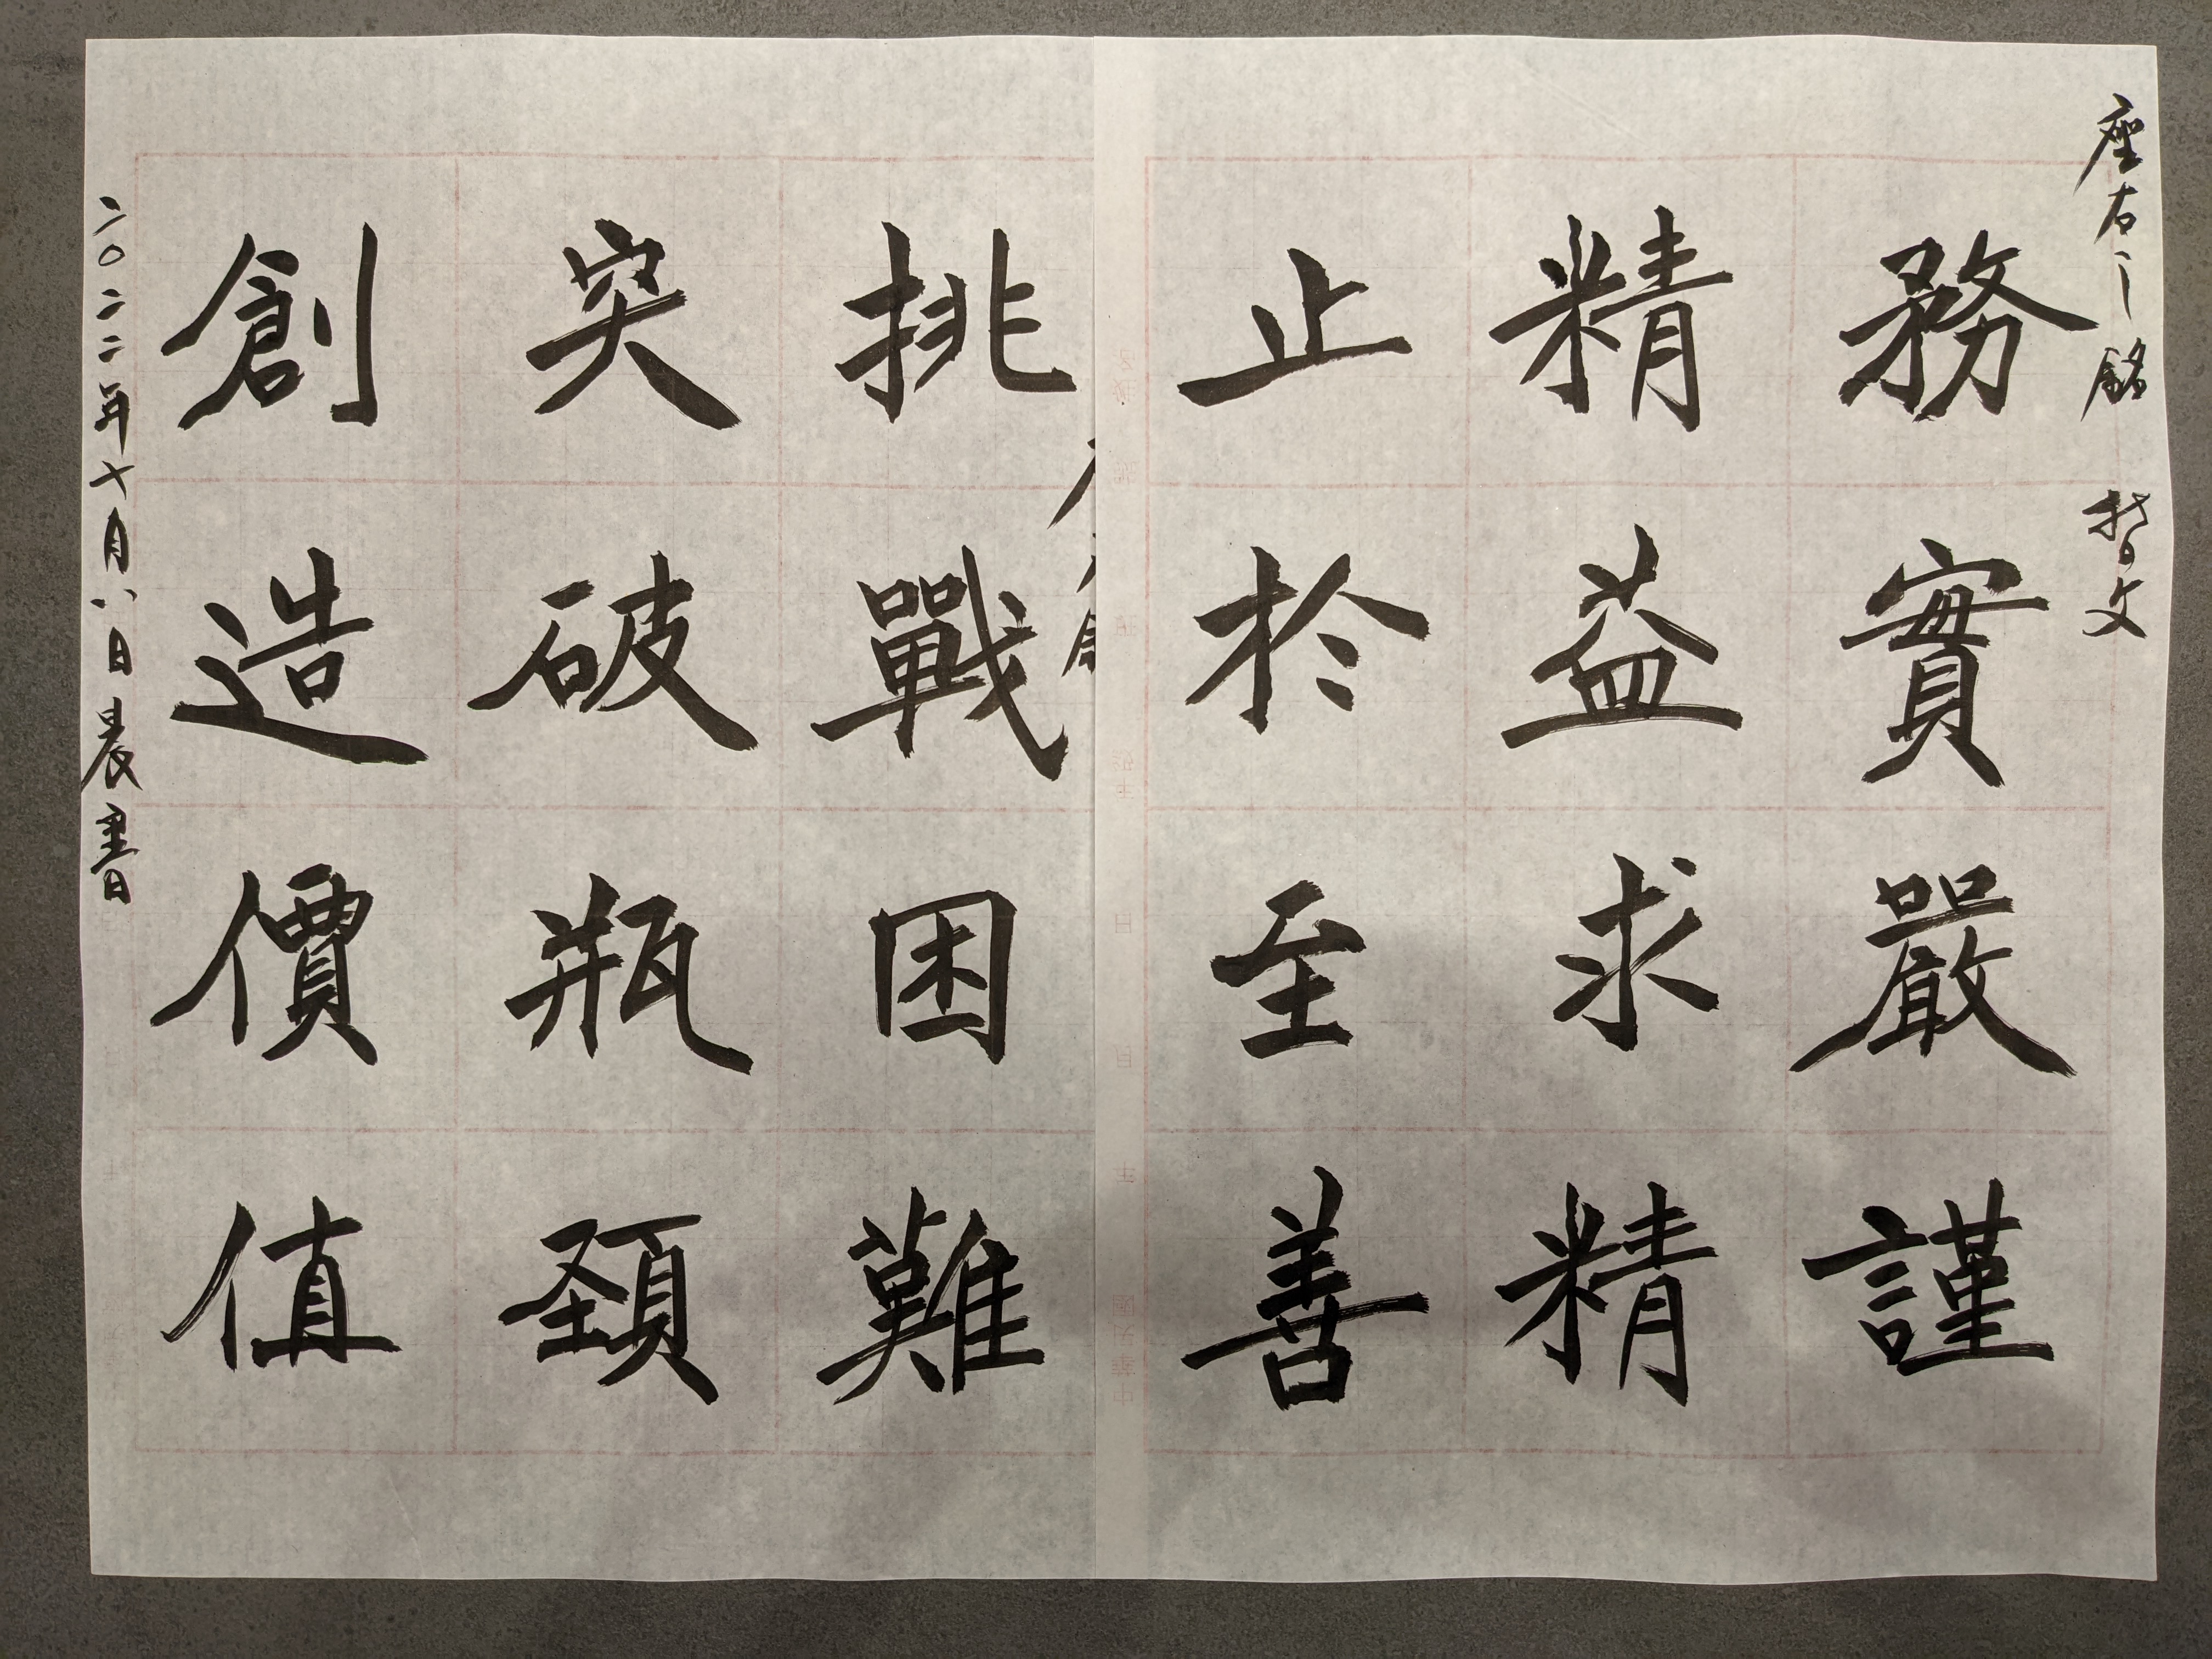 座右之銘 哲文
務實嚴謹
精益求精
止於至善
挑戰困難
突破瓶頸
創造價值
二〇二二年十月八日晨書